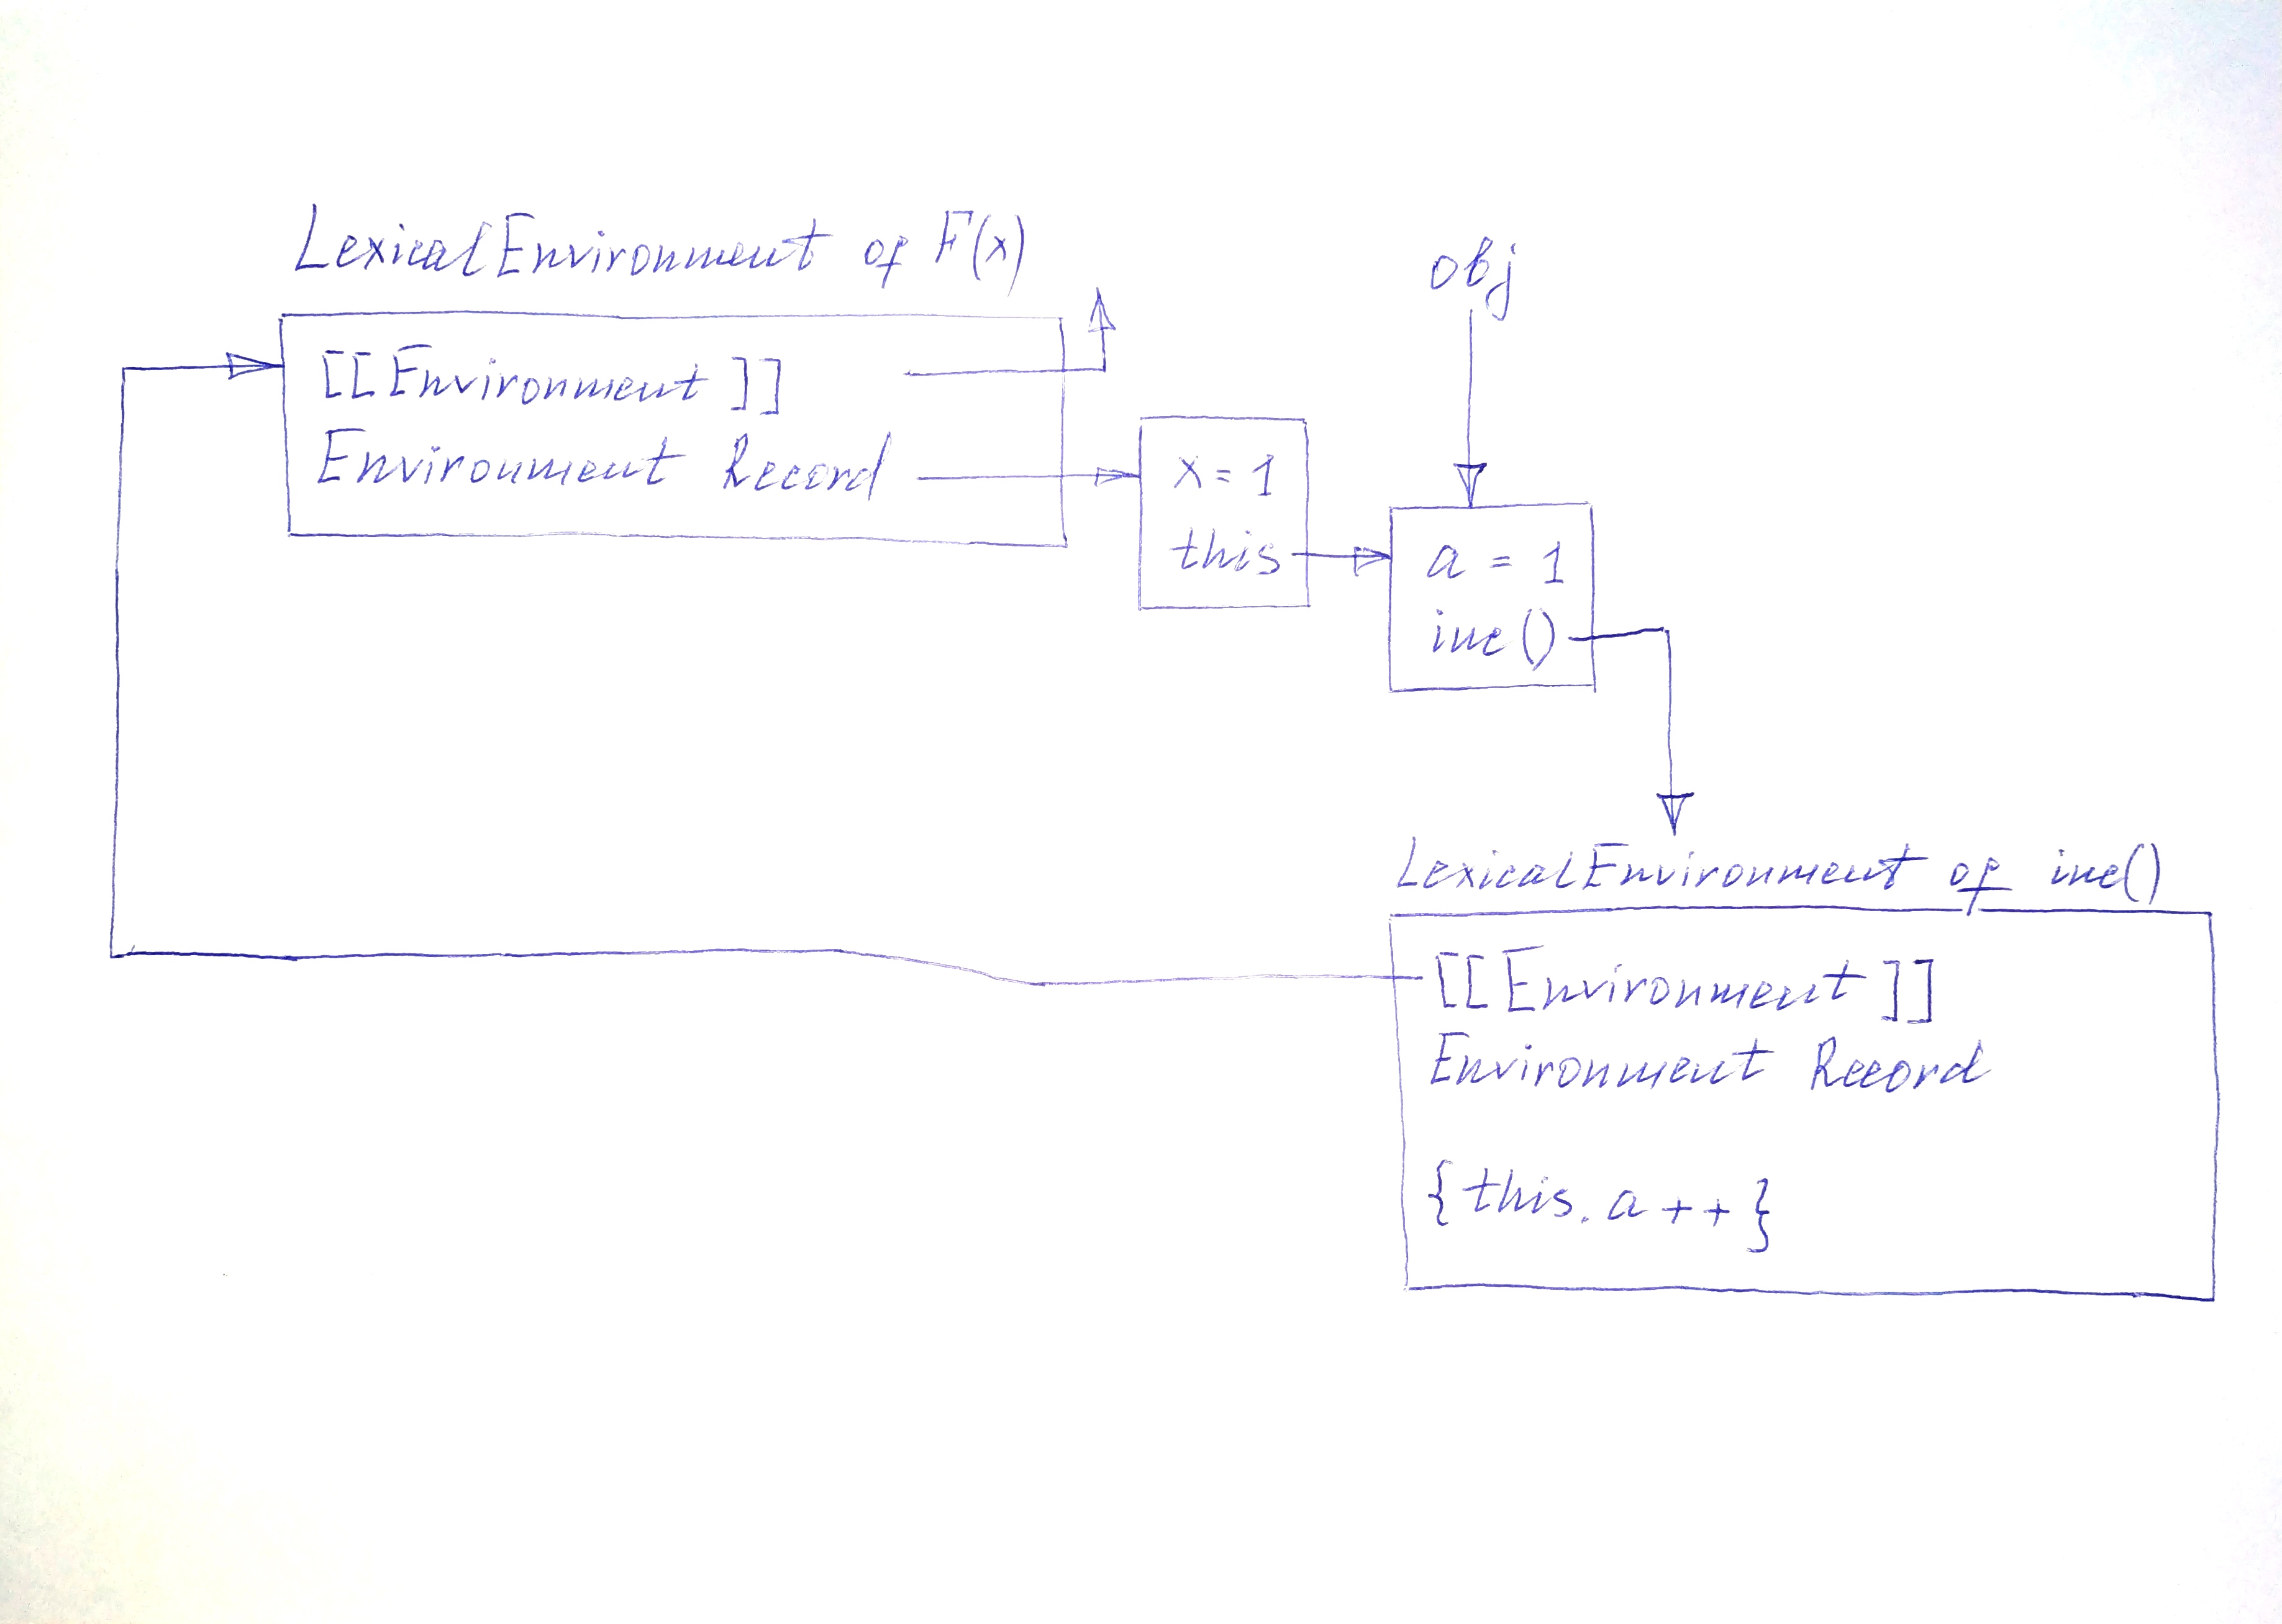 LexicalEnvironment of F(x)
obj
[[Environment]]
Environment Record
x = 1
this
a = 1
inc()
LexicalEnvironment of inc()
[[Environment]]
Environment Record
{this.a++}